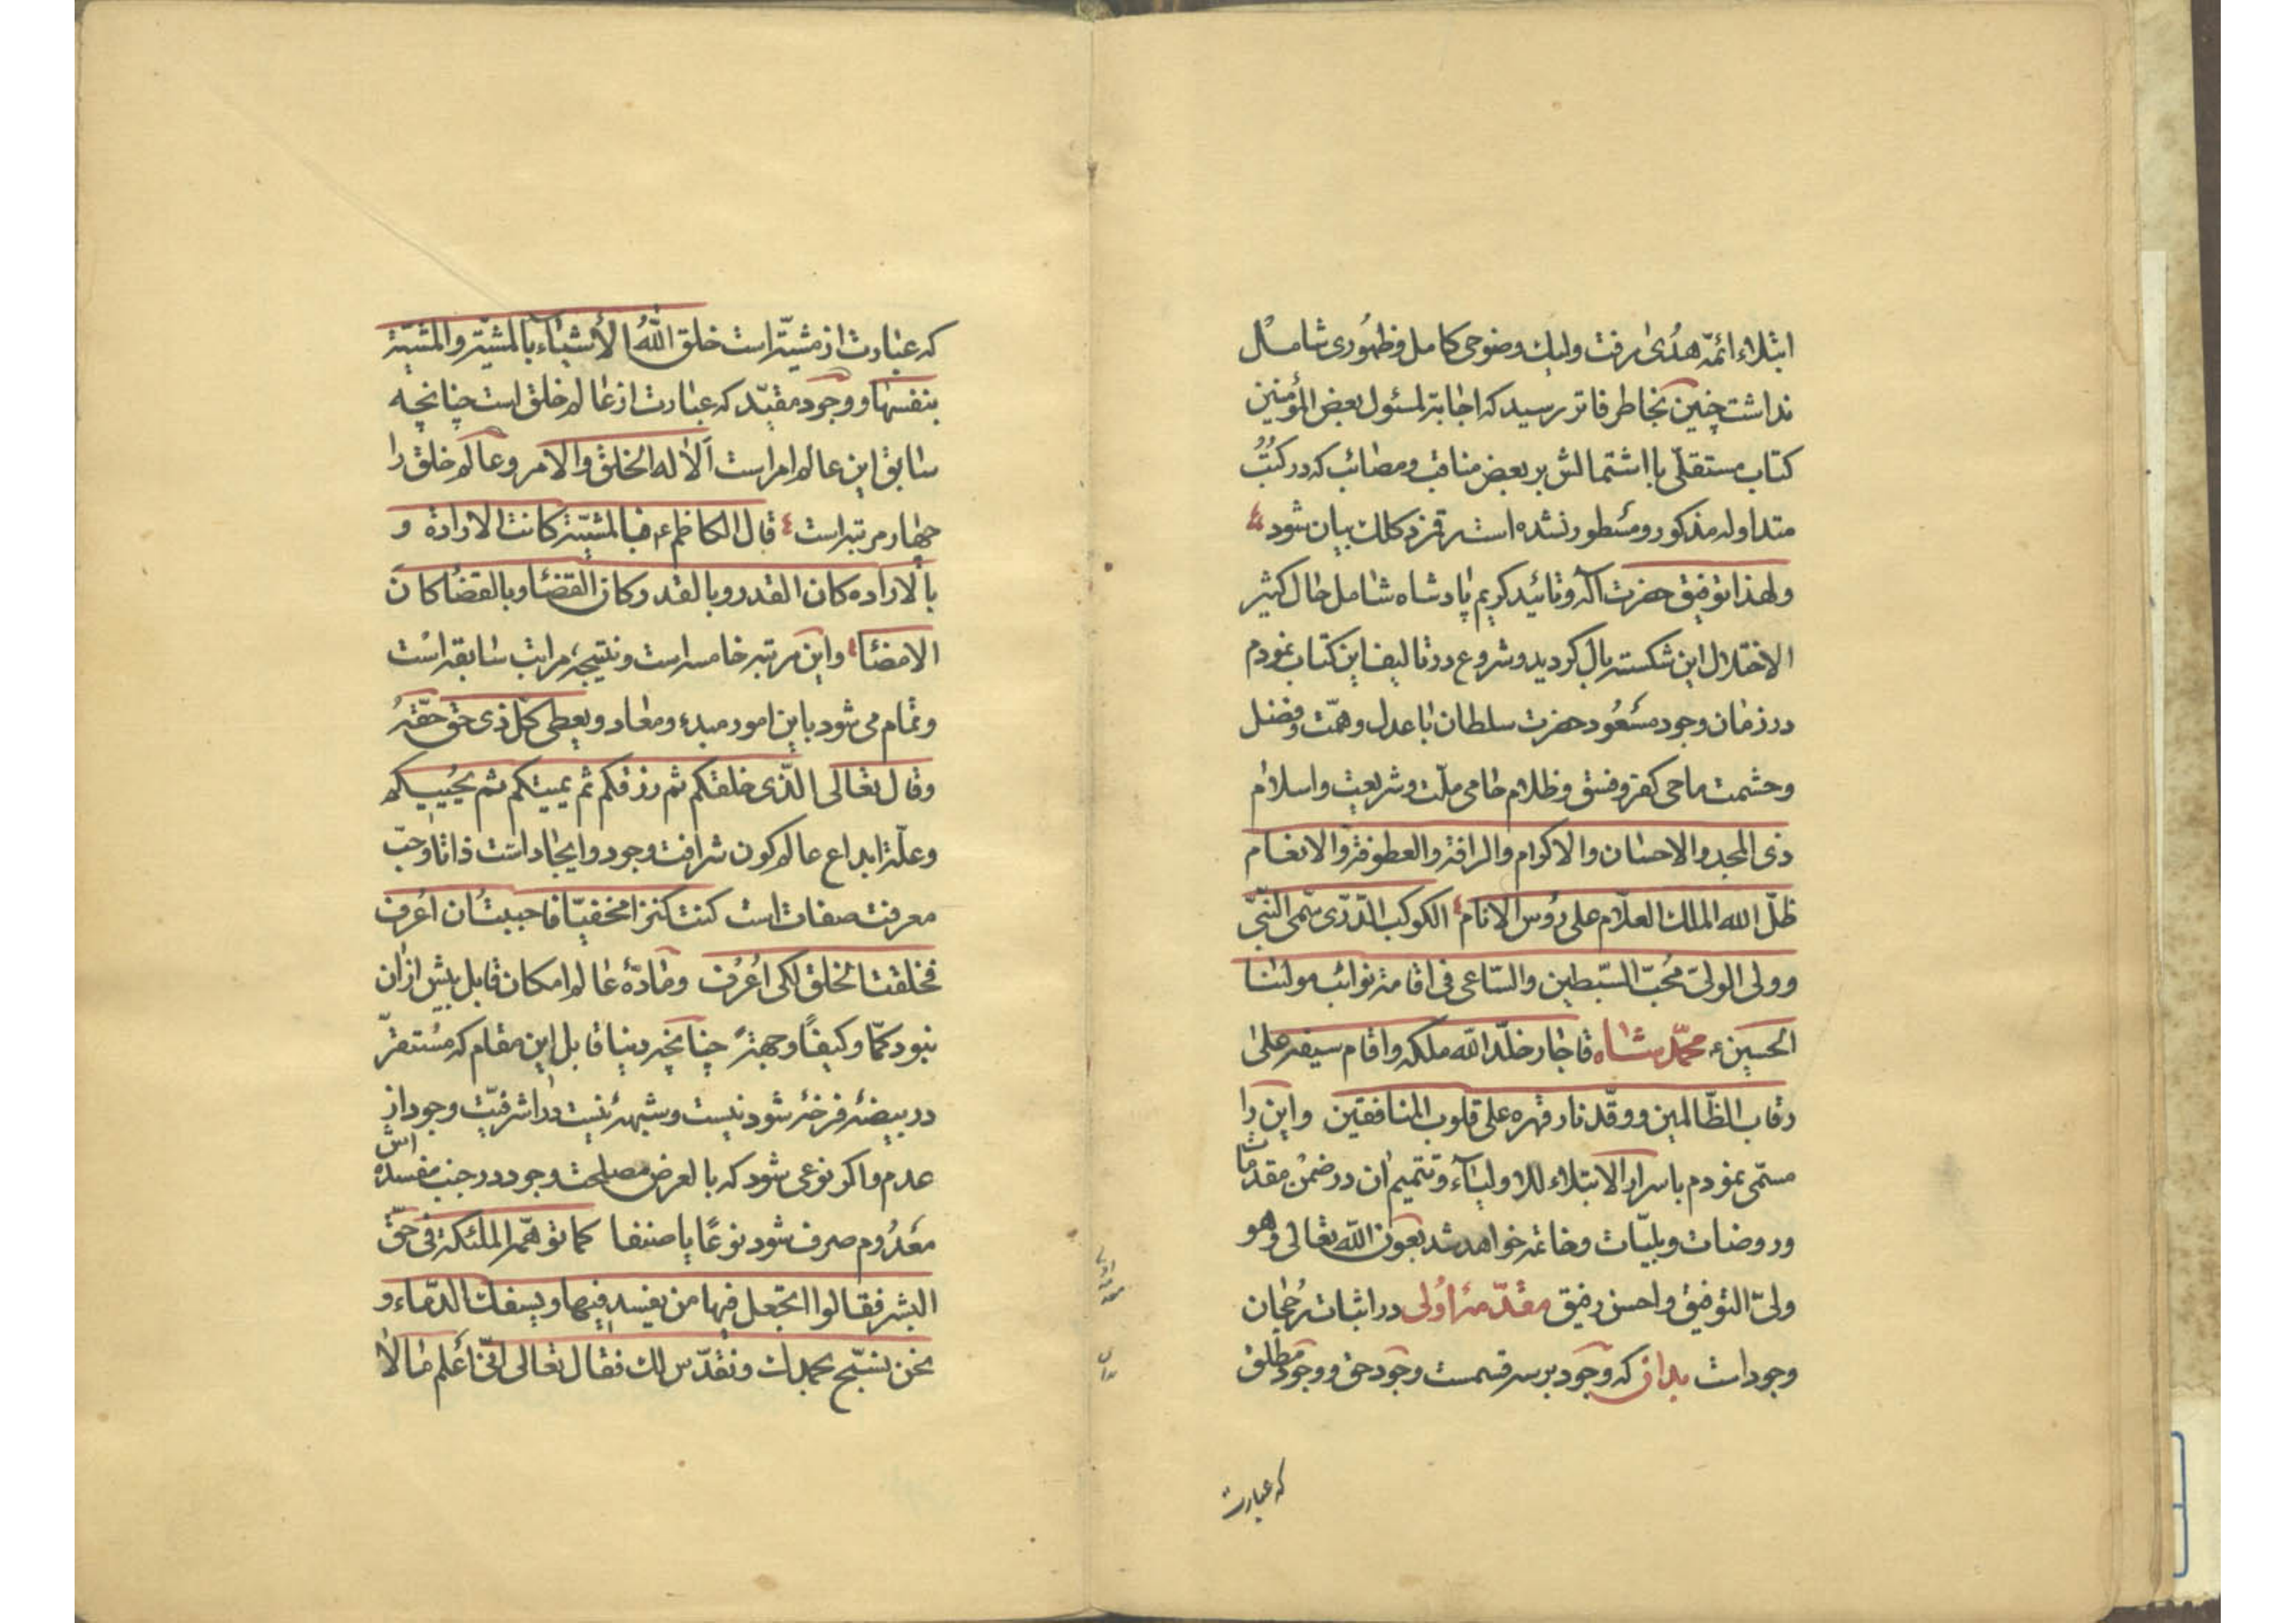 ابتلاء ائمّه هدُی رفت ولیك وضوحی کامل وظهُوری شامل
نداشت چنین بخاطر فاتر رسید که اجابة لمسئول بعض المؤمنین
کتاب مستقلّی با اشتمالش بر بعض مناقب ومصائب که در کتُبُ
متداوله مذکور ومسطور نشده است رقم زد کلك بیان شود
ولهذا توفیق حضرت آله وتائید کریم پادشاه شامل حال کثیر
الاختلال این شکسته بال کردید وشروع در تالیف این کتاب نمودم
در زمان وجود مسعُود حضرت سلطان با عدل وهمّت وفضل
وحشمت ماحی کفر وفسق وظلام حامی ملّت وشریعت واسلام
ذی المجد والاحسان والاکرام والرافة والعطوفة والانعام
ظلّ الله الملك العلّام علی رؤس الانام الکوکب الدّرّی سّمی النّبّی
وولی الولیّ مُحبّ السّبطین والسّاعی فی اقامة نوائب مولٰنا
الحسین ع محمّد شاه قاجار خلّد اللّه ملکه واقام سیفه علیٰ
رقاب الظّالمین ووقّد نار قهره علی قلوب المنافقین واین را
مسمّی نمودم باسرار الابتلاء للاولیآء وتتمیم ان در ضمن مقدمات
وروضات وبلیّات وخاتمه خواهد شد بعون اللّه تعالی وهو
ولیّ التوفیق واحسن رفیق مقدّمهٔ اوُلی در اثبات رُجحان
وجود است بدان که وجود بر سه قسمست وجود حق ووجود مطلق
که عبارت
که عبارت از مشیّة است خلق اللّهُ الاَشیٰآء بالمشیّة والمشیّة
بنفسها ووجود مقیّد که عبارت از عالم خلق است چنانچه
سابق این عالم امر است اَلا له الخلق والامر وعالم خلق را
چهار مرتبه است قال الکاظم ع فبالمشیّة کانت الارادة و
بالاراده کان القدر وبالقدر کان القضٰا وبالقضٰا کان
الامضٰا واین مرتبه خامسه است ونتیجهٔ مراتب سابقه است
وتمام می شود باین امور مبدء ومعاد ویعطی کلّ ذی حقّ حقّهُ
وقال تعالی الّذی خلقکم ثم رزقکم ثم یمیتکم ثم یُحییکم
وعلّة ابداع عالم کون شرافت وجود وایجاد است ذاتا وحبّ
معرفت صفات است کنت کنزا مخفیّا فاحببتُ ان اُعرف
فخلقت الخلق لکی اُعُرف ومٰادّهٔ عالم امکان قابل بیش از ان
نبود کمّا وکیفًا وجهةً چنانچه دنیا قابل این مقام که مُستقرّ
در بیضه فرخهٔ شود نیست وشبههٔ نیست در اشرفیّت وجود از
عدم واکر نوعی شود که بالعرض مصلحت وجود در جنب مفسده اش
معدُوم صرف شود نوعًا یا صنفا کما توهّم الملئکة فی حقّ
البشر فقالوا اتجعل فیها من یفسد فیها ویسفك الدّماء و
نحن نسبّح بحمدك ونقدّس لك فقال تعالی انّی اَعلم مٰا لا